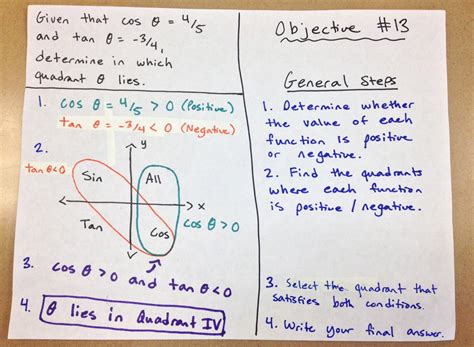 Given that cos θ = 4/5
and tan θ = -3/4,
determine in which
quadrant θ lies.
1. cos θ = 4/5 > 0 (Positive)
tan θ = -3/4 < 0 (Negative)
2.
y
tan θ<0
Sin
All
x
Tan
Cos
cos θ > 0
3. cos θ > 0 and tan θ < 0
4. θ lies in Quadrant IV
Objective #13
General Steps
1. Determine whether
the value of each
function is positive
or negative.
2. Find the quadrants
where each function
is positive / negative.
3. Select the quadrant that
satisfies both conditions.
4. Write your final answer.